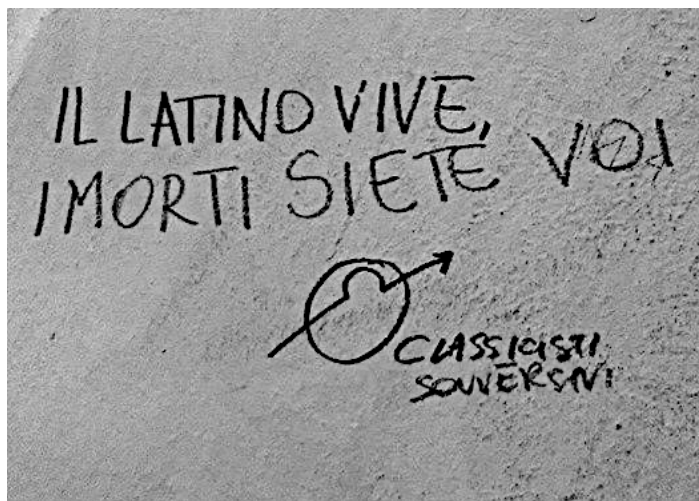 IL LATINO VIVE,
I MORTI SIETE VOI
CLASSICISTI
SOVVERSIVI